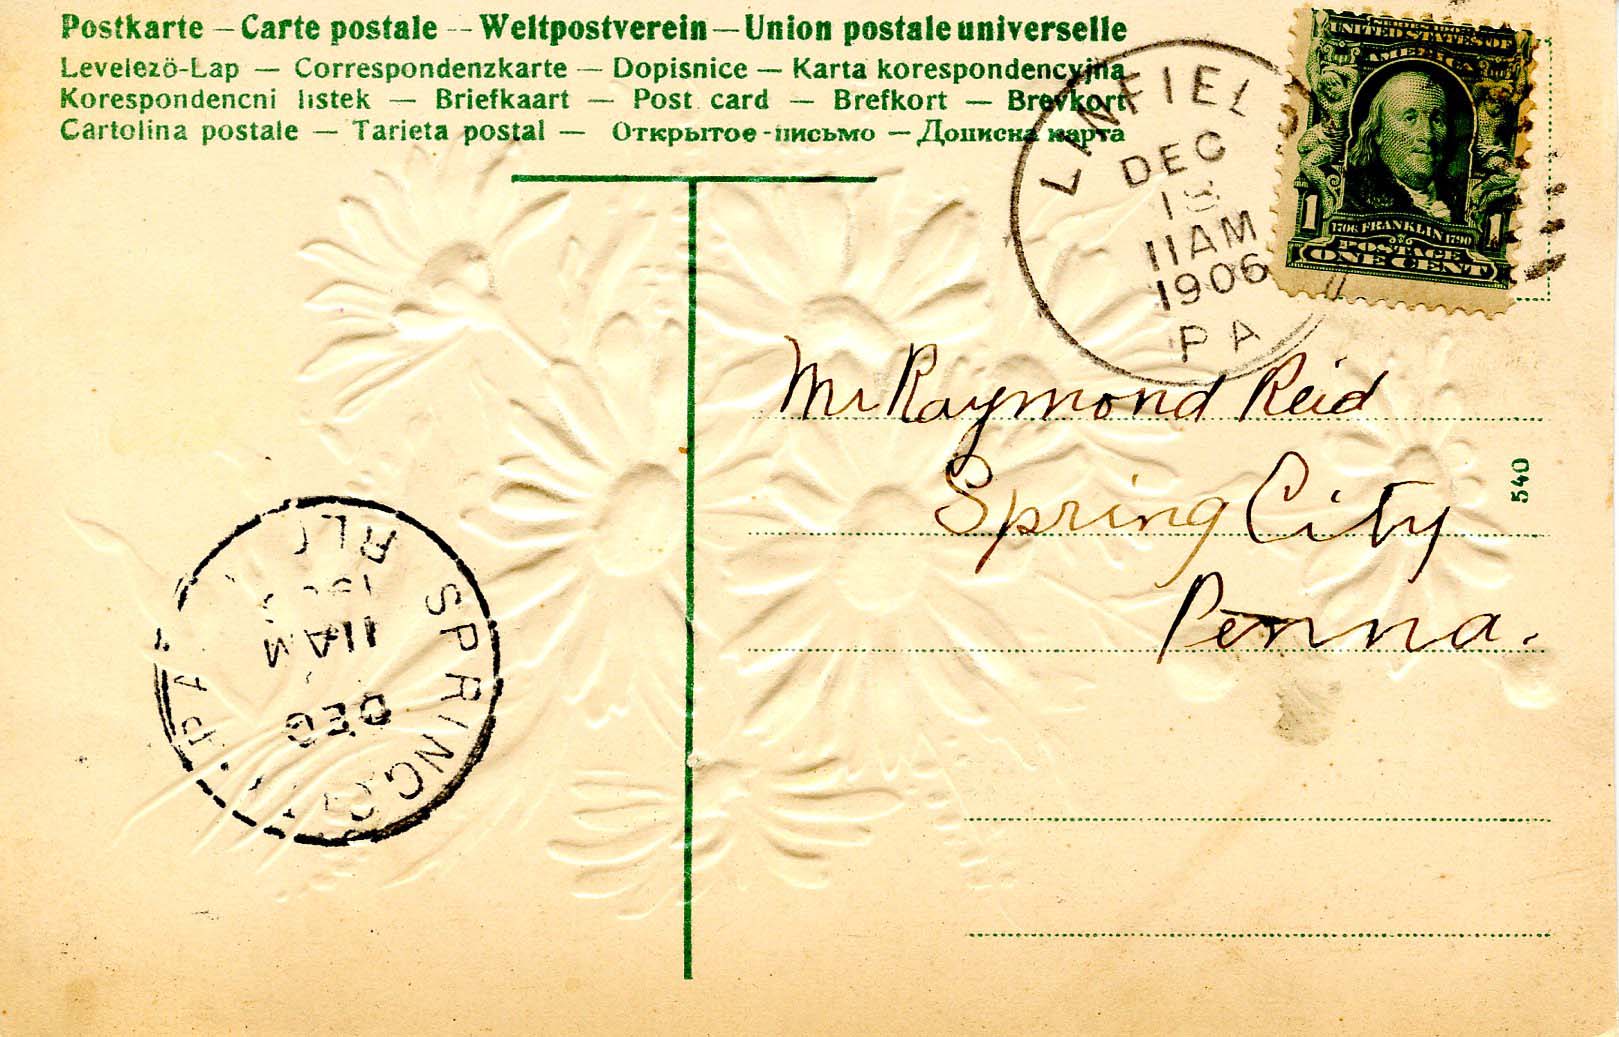 Postkarte – Carte postale -- Weltpostverein – Union postale universelle
Levelező-Lap — Correspondenzkarte — Dopisnice — Karta korespondencyjna
Korespondencni listek — Briefkaart — Post card — Brefkort — Brevkort
Cartolina postale — Tarieta postal — Открытое-письмо — Дописна карта
LINFIEL
DEC
18
11AM
1906
PA
UNITED STATES OF
AMERICA
1 1
1706 FRANKLIN 1790
POSTAGE
ONE CENT
Mr Raymond Reid
Spring City
Penna.
540
SPRING
DEC
11AM